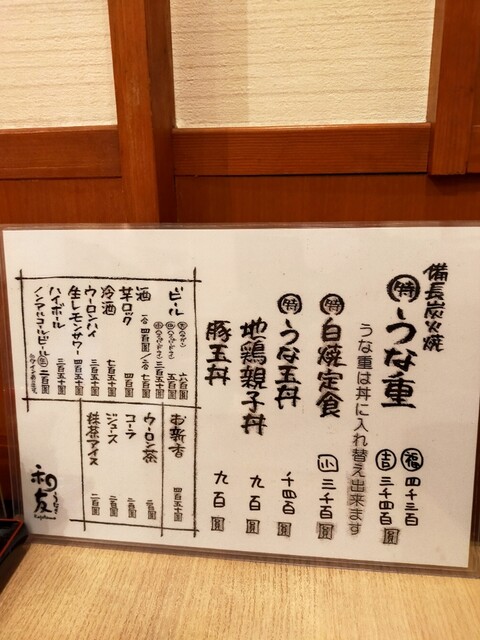 備長炭火焼
特 うな重
福 四千三百
吉 三千四百円
うな重は丼に入れ替え出来ます
特 白焼定食 小 三千百円
特 うな玉丼 千四百円
地鶏親子丼 九百円
豚玉丼 九百円
ビール
六百円
五百円
三百五十円
酒 一合 四百円/二合 七百円
芋ロック 四百円
冷酒 七百五十円
ウーロンハイ 三百五十円
生レモンサワー 四百五十円
ハイボール 三百五十円
ノンアルコールビール 三百円
お新香 四百五十円
ウーロン茶 二百円
コーラ 二百円
ジュース 二百円
抹茶アイス 二百円
うなぎ
和友